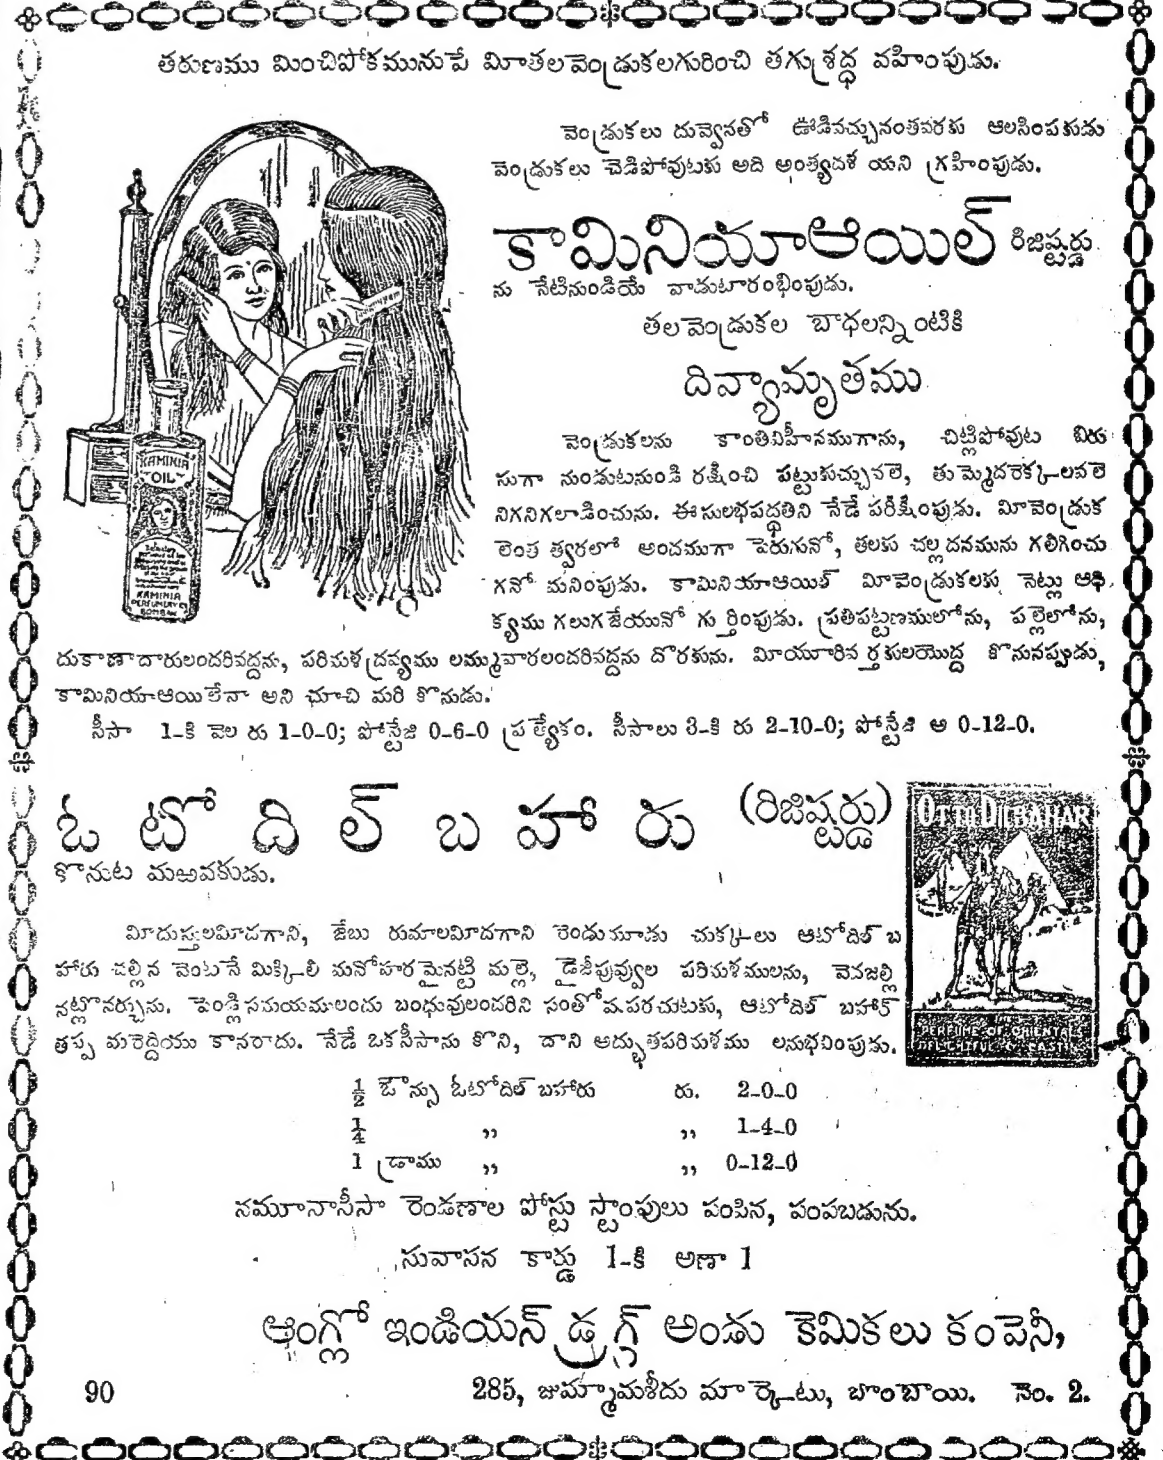 తరుణము మించిపోకమునుపే మీతలవెండ్రుకలగురించి తగుశ్రద్ధ వహింపుడు.
వెండ్రుకలు దువ్వెనతో ఊడివచ్చునంతవరకు ఆలసింపకుడు
వెండ్రుకలు చెడిపోవుటకు అది అంత్యదశ యని గ్రహింపుడు.
కామినియాఆయిల్ రిజిష్టర్డు
ను నేటినుండియే వాడుటారంభింపుడు.
తలవెండ్రుకల బాధలన్నింటికి
దివ్యామృతము
వెండ్రుకలను కాంతివిహీనముగాను, చిట్లిపోవుట విరు
సుగా నుండుటనుండి రక్షించి పట్టుకుచ్చువలె, తుమ్మెదరెక్కలవలె
నిగనిగలాడించును. ఈసులభపద్ధతిని నేడే పరీక్షింపుడు. మీవెండ్రుక
లెంత త్వరలో అందముగా పెరుగునో, తలకు చల్లదనమును గలిగించు
గనో మనింపుడు. కామినియాఆయిల్ మీవెండ్రుకలకు నెట్లు ఆధి
క్యము గలుగజేయునో గుర్తింపుడు. ప్రతిపట్టణములోను, పల్లెలోను,
దుకాణాదారులందరివద్దను, పరిమళద్రవ్యము లమ్మువారలందరివద్దను దొరకును. మీయూరివర్తకులయొద్ద కొనునప్పుడు,
కామినియాఆయిలేనా అని చూచి మరి కొనుడు.
సీసా 1-కి వెల రు 1-0-0; పోస్టేజి 0-6-0 ప్రత్యేకం. సీసాలు 3-కి రు 2-10-0; పోస్టేజి అ 0-12-0.
KAMINIA
OIL
KAMINIA
PERFUMERY Co
BOMBAY
ఓటోదిల్బహారు (రిజిష్టర్డు)
కొనుట మఱవకుడు.
OTTO DILBAHAR
మీదుస్తులమీదగాని, జేబు రుమాలమీదగాని రెండుమూడు చుక్కలు ఆటోదిల్ బ
హారు చల్లిన వెంటనే మిక్కిలి మనోహరమైనట్టి మల్లె, డైజీపువ్వుల పరిమళములను, వెదజల్లి
నట్లొనర్చును. పెండ్లిసమయములందు బంధువులందరిని సంతోషపరచుటకు, ఆటోదిల్ బహార్
తప్ప మరెద్దియు కానరాదు. నేడే ఒకసీసాను కొని, దాని అద్భుతపరిమళము లనుభవింపుడు.
PERFUME OF ORIENTAL
DELIGHTFUL
½ ఔన్సు ఓటోదిల్ బహారు రు. 2-0-0
¼ ,, ,, 1-4-0
1 డ్రాము ,, ,, 0-12-0
నమూనాసీసా రెండణాల పోస్టు స్టాంపులు పంపిన, పంపబడును.
సువాసన కార్డు 1-కి అణా 1
ఆంగ్లో ఇండియన్ డ్రగ్గ్ అండు కెమికలు కంపెనీ,
90 285, జుమ్మామశీదు మార్కెటు, బొంబాయి. నెం. 2.